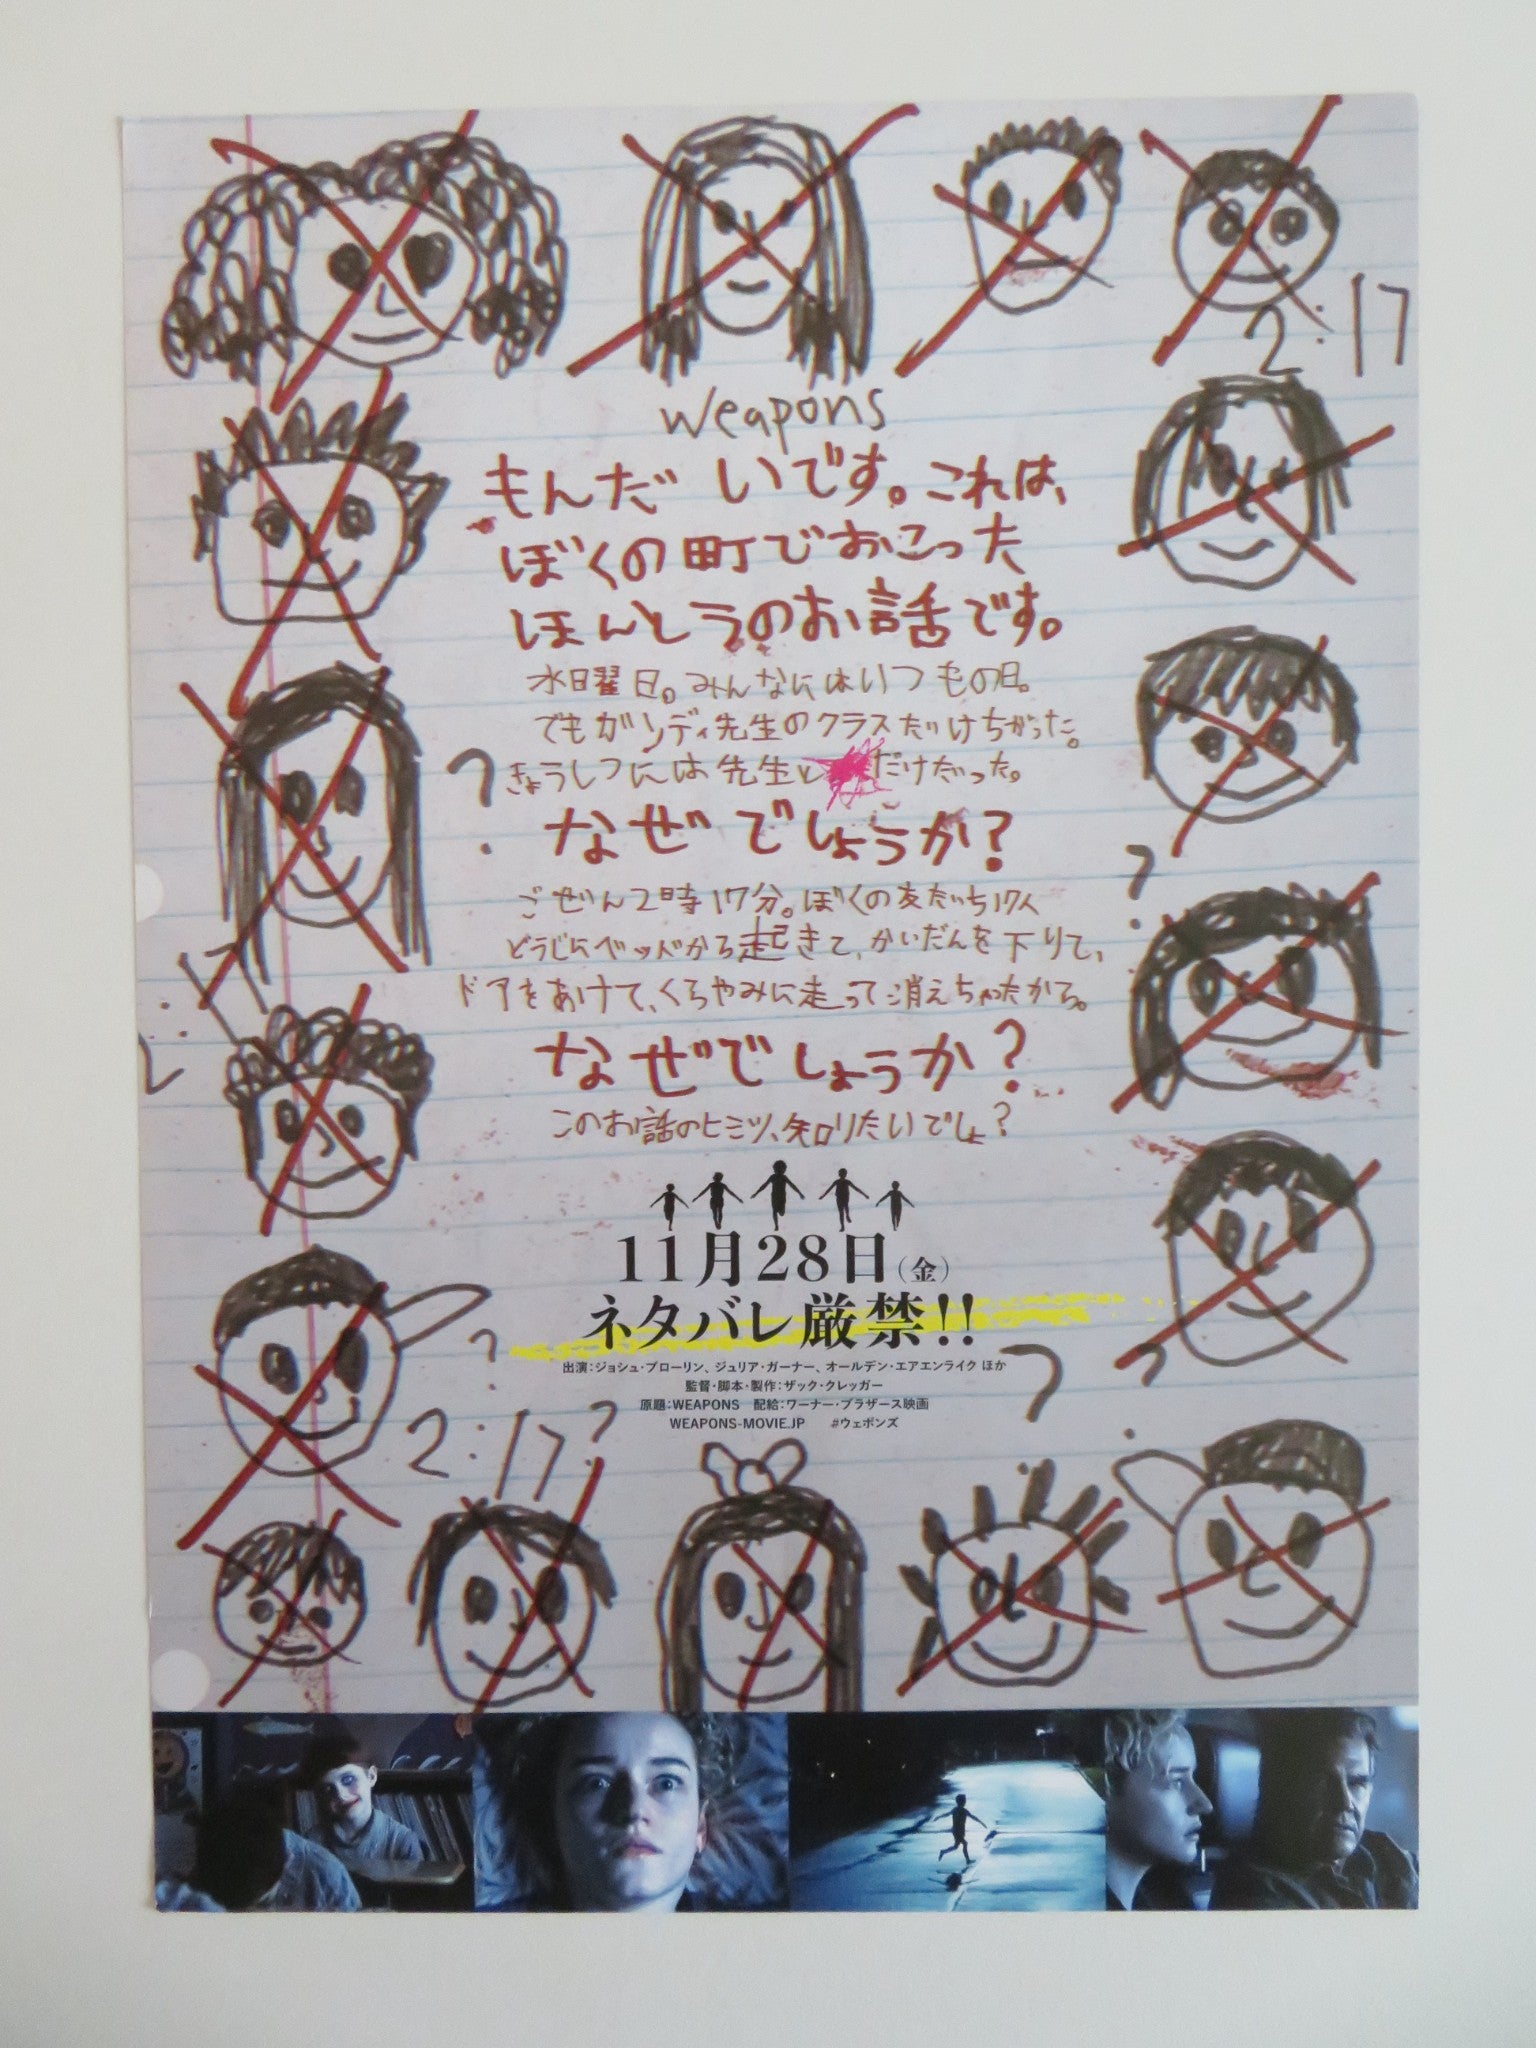 2:17
weapons
もんだいです。これは、
ぼくの町でおこった
ほんとうのお話です。
水曜日。みんなにはいつもの日。
でもガンディ先生のクラスだけちがった。
きょうしつには先生と だけだった。
?
なぜでしょうか?
?
ごぜん2時17分。ぼくの友だち17人
どうじにベッドから起きて、かいだんを下りて、
ドアをあけて、くらやみに走って消えちゃたから。
2:17
なぜでしょうか?
このお話のヒミツ、知りたいでしょ?
11月28日(金)
ネタバレ厳禁!!
?
?
出演:ジョシュ・ブローリン、ジュリア・ガーナー、オールデン・エアエンライク ほか
監督・脚本・製作:ザック・クレッガー
原題:WEAPONS 配給:ワーナー・ブラザース映画
WEAPONS-MOVIE.JP #ウェポンズ
?
2:17?